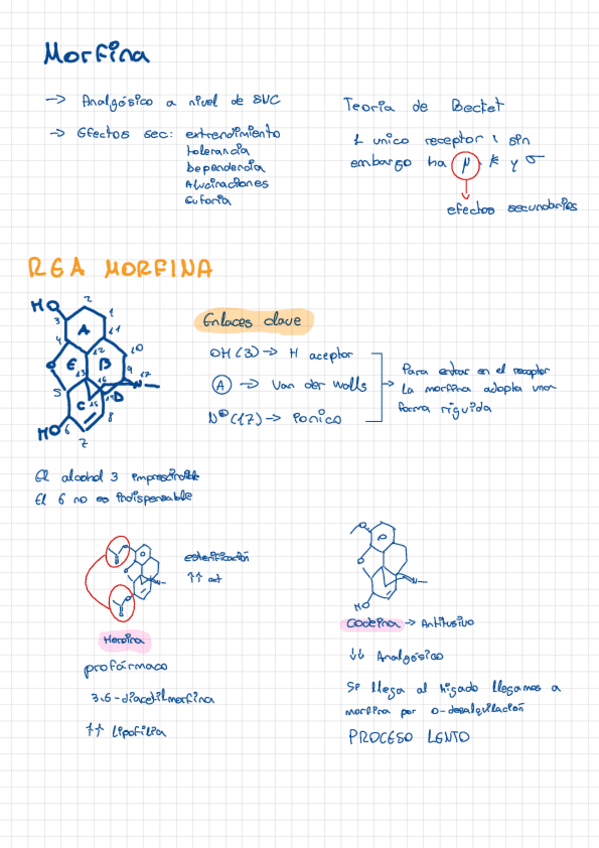 Morfina
-> Analgésico a nivel de SVC
-> Efectos sec: extrendimiento
tolerancia
Dependencia
Alucinaciones
Euforia
Teoría de Becket
1 unico receptor, sin
embargo ha μ, k y σ
efectos secundarios
REA MORFINA
HO
2
3
1
A
11
4
12
10
E
B
13
9
17
16
N
5
C
15
D
14
8
HO
6
7
Enlaces clave
OH (3) -> H aceptor
A -> Van der Walls
N⊕ (17) -> Ionico
-> Para entrar en el receptor
la morfina adopta una
forma riguida
El alcohol 3 imprescindible
El 6 no es indispensable
esterificación
↑↑ act
Heroina
profármaco
3,6-diacetilmorfina
↑↑ Lipofilia
HO
Codeina -> Antitusivo
↓↓ Analgésico
Si llega al hígado llegamos a
morfina por o-desalquilación
PROCESO LENTO